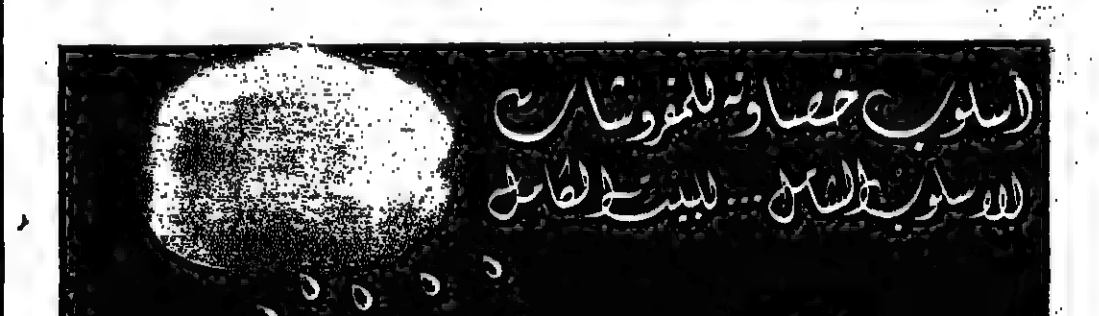 أسلوب خصاونه للمفروشات
الاسلوب الشامل ... للبيت الكامل